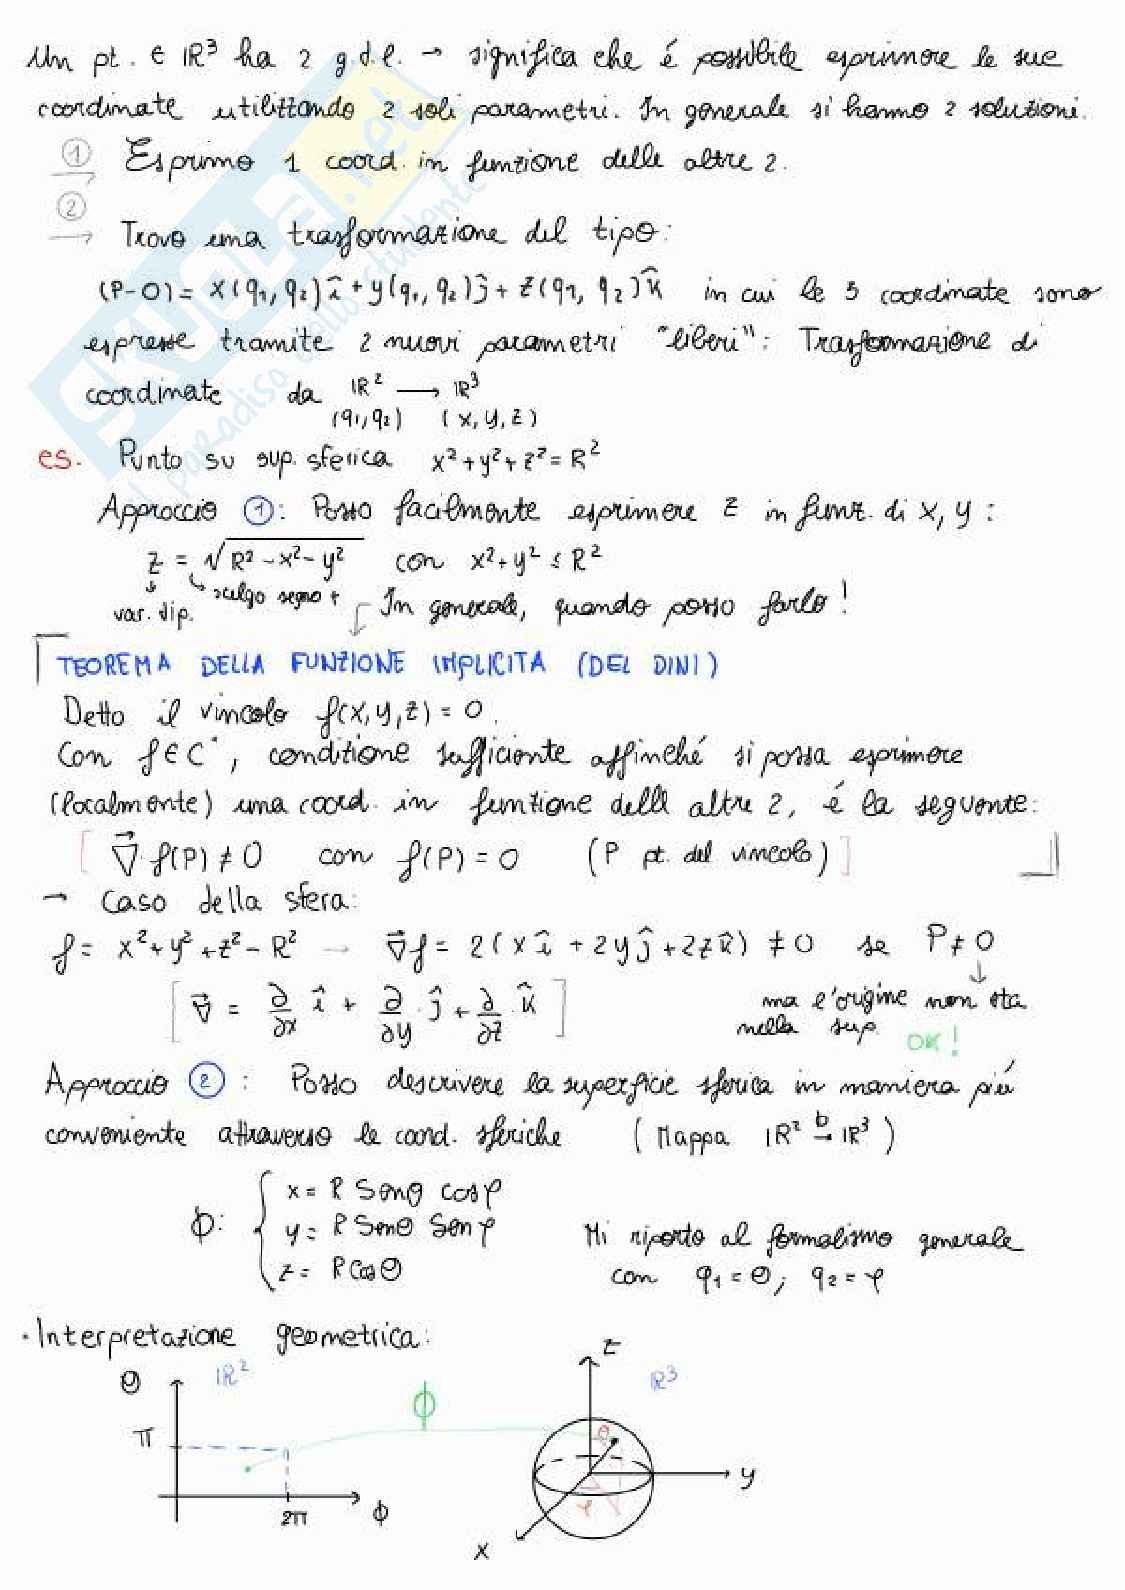 Un pt. ∈ ℝ³ ha 2 g.d.l. → significa che é possibile esprimere le sue
coordinate utilizzando 2 soli parametri. In generale si hanno 2 soluzioni.
① Esprimo 1 coord. in funzione delle altre 2.
② Trovo una trasformazione del tipo:
(P-O) = x(q₁, q₂)î + y(q₁, q₂)ĵ + z(q₁, q₂)k̂ in cui le 3 coordinate sono
espresse tramite 2 nuovi parametri "liberi": Trasformazione di
coordinate da ℝ² → ℝ³
(q₁, q₂) (x, y, z)
es. Punto su sup. sferica x² + y² + z² = R²
Approccio ①: Posso facilmente esprimere z in funz. di x, y :
z = √(R² - x² - y²) con x² + y² ≤ R²
↳ scelgo segno +
var. dip.
In generale, quando posso farlo!
TEOREMA DELLA FUNZIONE IMPLICITA (DEL DINI)
Detto il vincolo f(x, y, z) = 0.
Con f ∈ C¹, condizione sufficiente affinché si possa esprimere
(localmente) una coord. in funzione delle altre 2, é la seguente:
[ ∇⃗ f(P) ≠ 0 con f(P) = 0 (P pt. del vincolo) ]
→ Caso della sfera:
f = x² + y² + z² - R² → ∇⃗f = 2(x î + 2y ĵ + 2z k̂) ≠ 0 se P ≠ 0
[ ∇⃗ = ∂/∂x î + ∂/∂y ĵ + ∂/∂z k̂ ]
ma l'origine non sta
nella sup. OK!
Approccio ② : Posso descrivere la superficie sferica in maniera piú
conveniente attraverso le coord. sferiche (Mappa ℝ² →ᵇ ℝ³)
ϕ: { x = R senθ cosφ
y = R senθ senφ
z = R cosθ
Mi riporto al formalismo generale
con q₁ = θ; q₂ = φ
· Interpretazione geometrica:
θ ℝ²
π
2π ϕ
ϕ
z ℝ³
θ
y
φ
x
SKUOLA.net
il paradiso dello studente